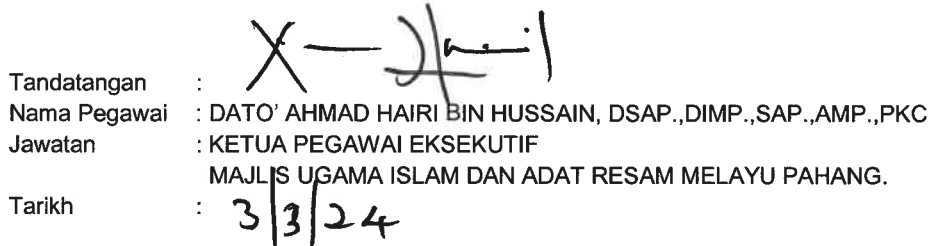 Tandatangan :
Nama Pegawai : DATO' AHMAD HAIRI BIN HUSSAIN, DSAP.,DIMP.,SAP.,AMP.,PKC
Jawatan : KETUA PEGAWAI EKSEKUTIF
MAJLIS UGAMA ISLAM DAN ADAT RESAM MELAYU PAHANG.
Tarikh : 3/3/24